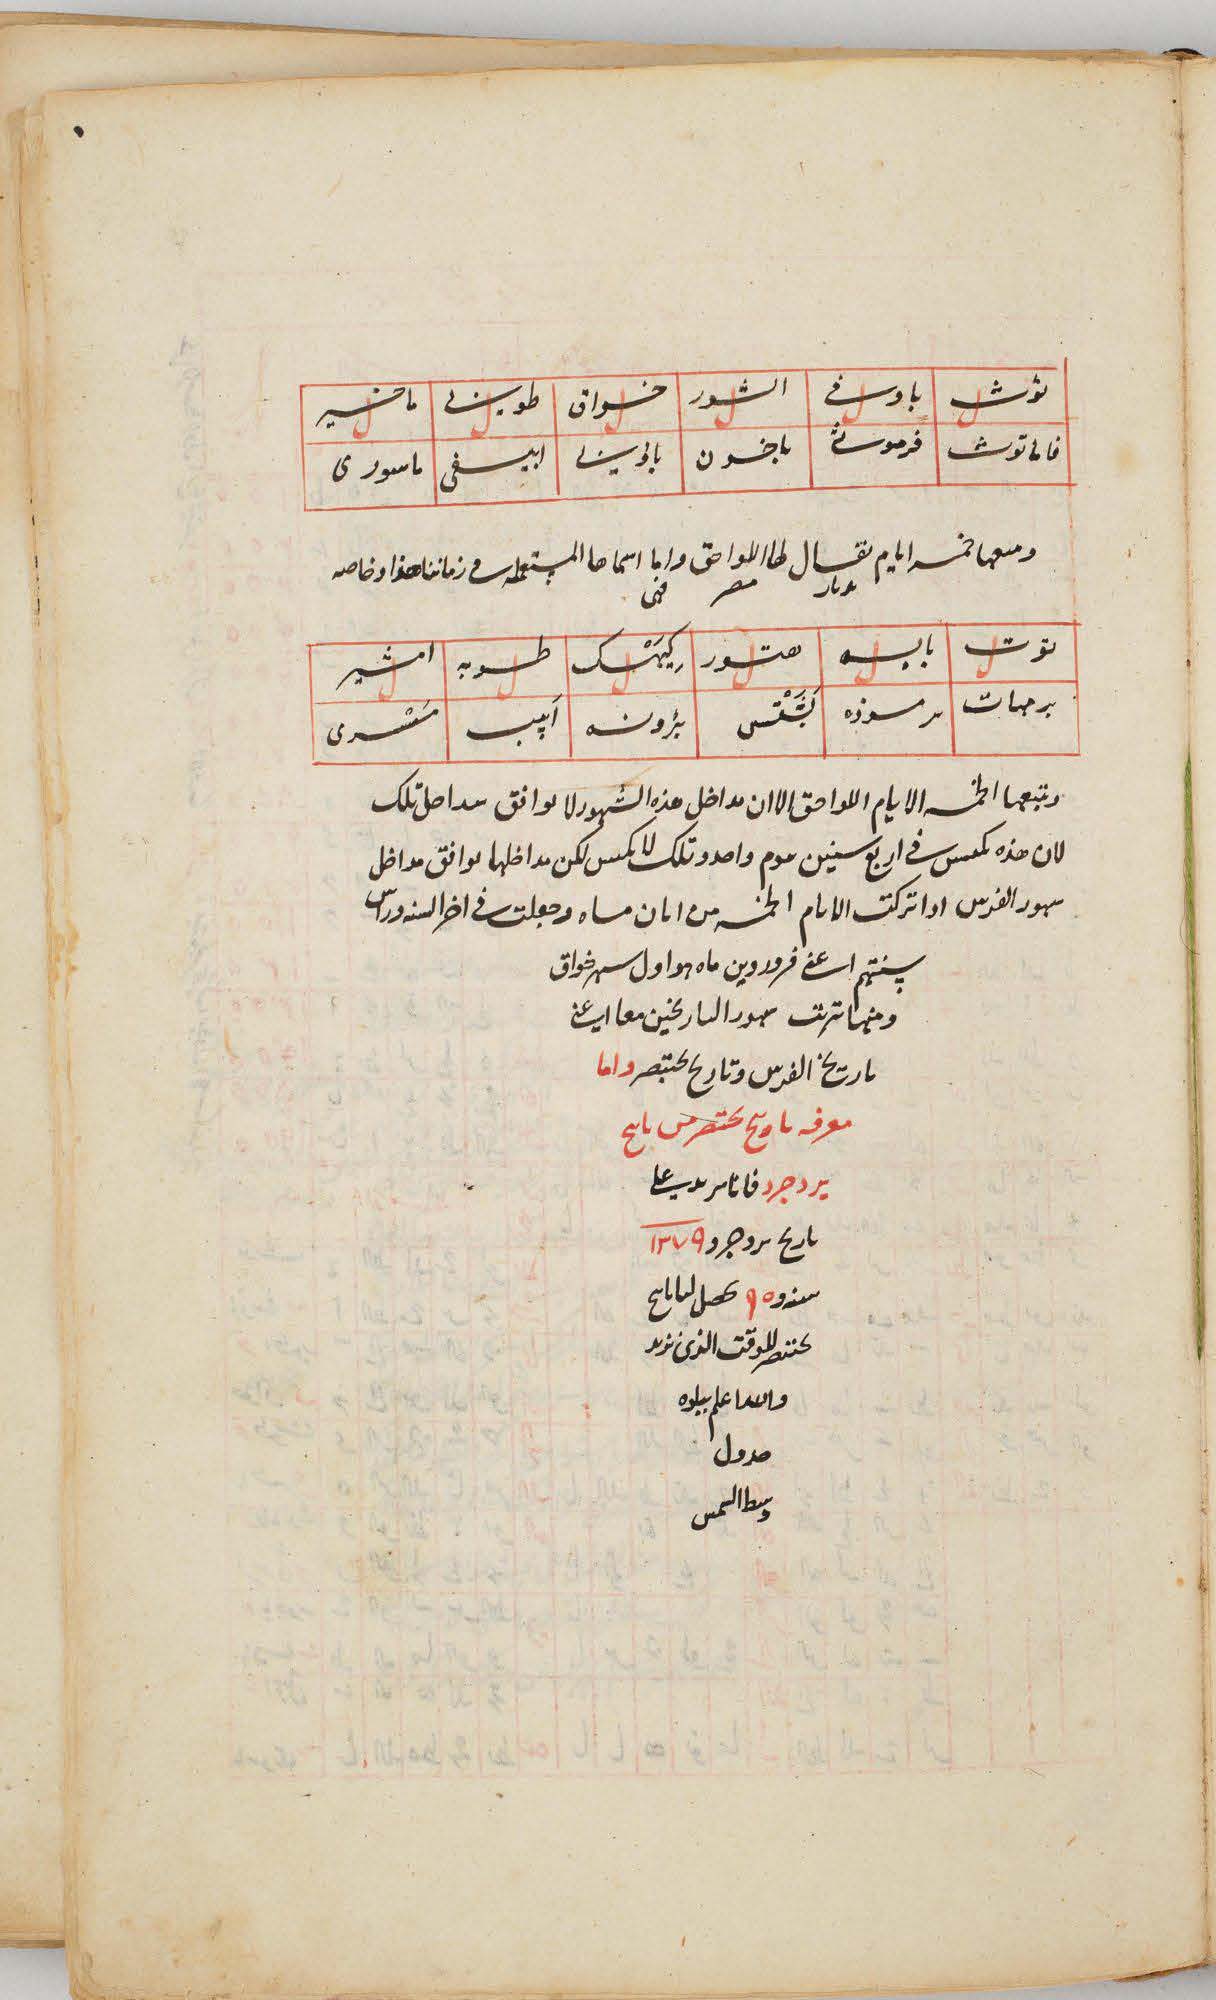 توث باوفى اثور خواق طوبى ماخير
ل ل ل ل ل ل
فامانوث فرموثى باخون باونى ابيفى ماسورى
ومعها خمسه ايام يقال لها اللواحق واما اسماها المستعمله فى زماننا هذا وخاصه
بديار مصر فهى
توت بابه هتور كيهك طوبه امشير
ل ل ل ل ل ل
برمهات برموذه بشنس بؤونه ابيب مسرى
وتتبعها الخمسه الايام اللواحق الا ان مداخل هذه الشهور لا توافق مداخل تلك
لان هذه تكبس فى اربع سنين بيوم واحد وتلك لا تكبس لكن مداخلها توافق مداخل
شهور الفرس اذا تركت الايام الخمسه من ابان ماه وجعلت فى اخر السنه وراس
سنتهم اعنى فروردين ماه هو اول شهر خواق
ومنها ترتب شهور التاريخين معا اعنى
تاريخ الفرس وتاريخ بختنصر واما
معرفه تاريخ بختنصر من تاريخ
يزدجرد فانا نزيد على
تاريخ يزدجرد ١٣٧٩
سنه و ٩٠ يحصل لنا تاريخ
بختنصر للوقت الذى نريد
والله اعلم يتلوه
جدول
وسط الشمس